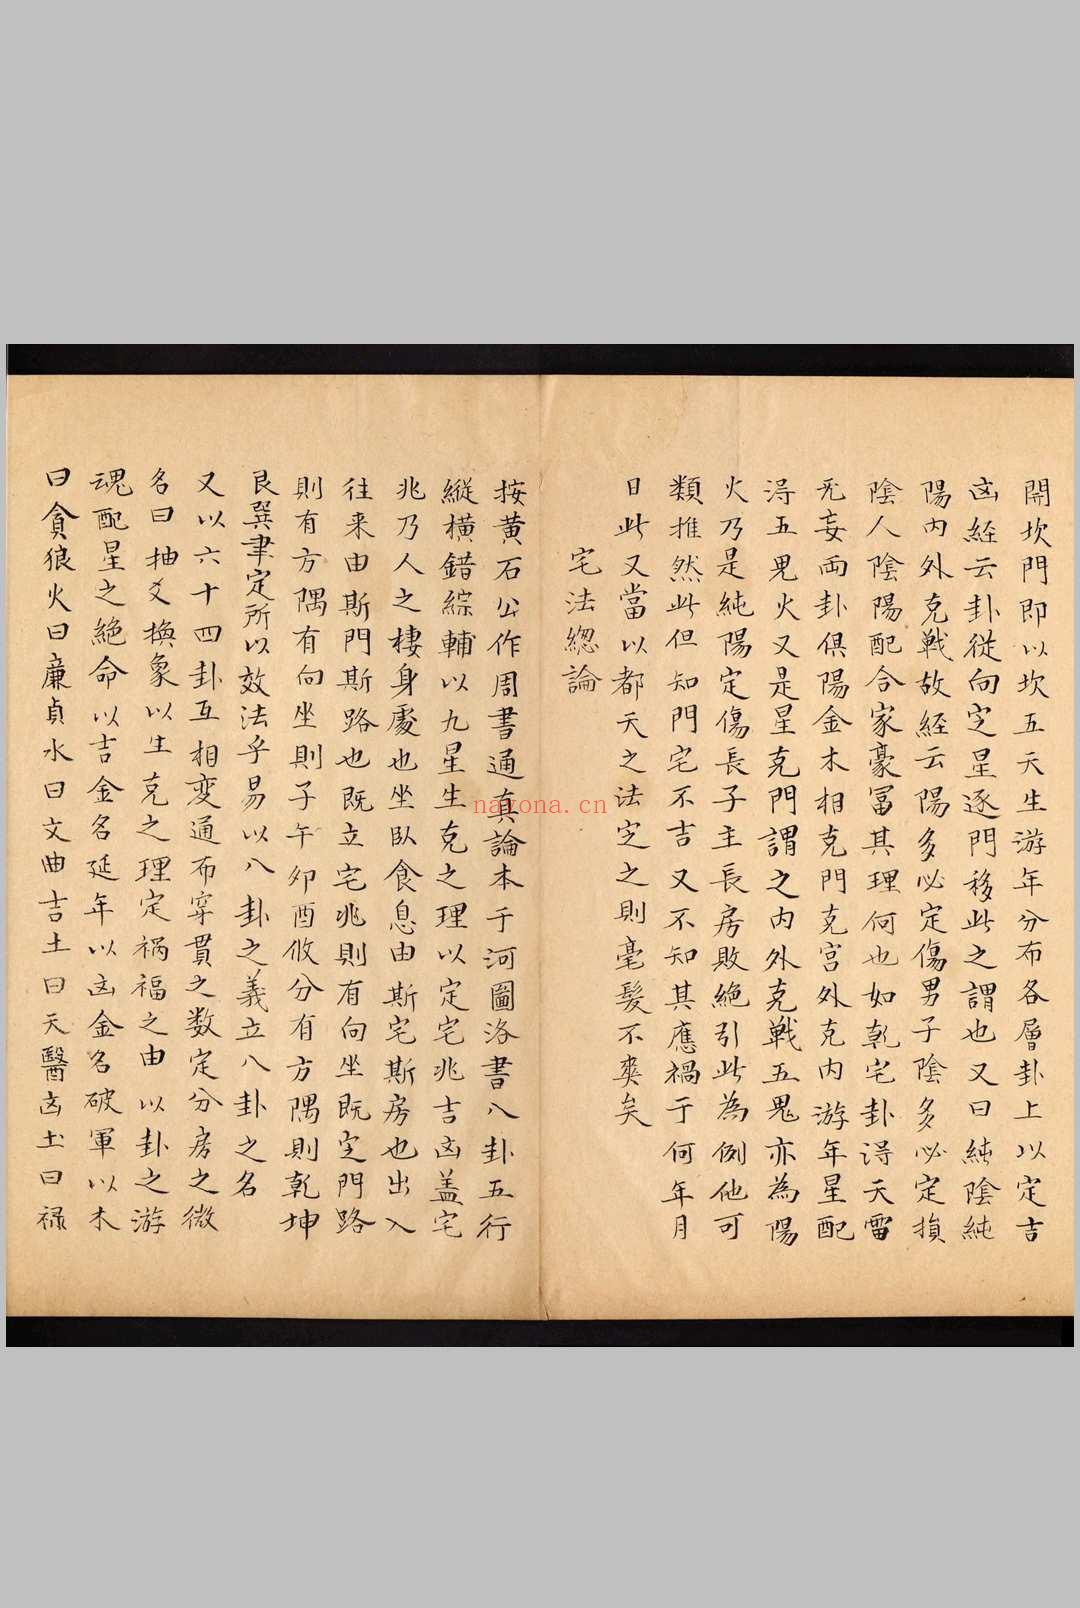 開坎門即以坎五天生游年分布各層卦上以定吉
凶経云卦從向定星逐門移此之謂也又曰純陰純
陽内外克戰故経云陽多必定傷男子陰多必定損
陰人陰陽配合家豪冨其理何也如乾宅卦淂天雷
旡妄両卦俱陽金木相克門克宫外克内游年星配
淂五鬼火又是星克門謂之内外克戰五鬼亦為陽
火乃是純陽定傷長子主長房敗絶引此為例他可
類推然此但知門宅不吉又不知其應禍于何年月
日此又當以都天之法定之則毫髮不爽矣
宅法總論
按黄石公作周書通真論本于河圖洛書八卦五行
縱横錯綜輔以九星生克之理以定宅兆吉凶盖宅
兆乃人之棲身處也坐臥食息由斯宅斯房也出入
往来由斯門斯路也既立宅兆則有向坐既定門路
則有方隅有向坐則子午卯酉攸分有方隅則乾坤
艮巽聿定所以效法乎易以八卦之義立八卦之名
又以六十四卦互相変通布穿貫之数定分房之微
名曰抽爻換象以生克之理定禍福之由以卦之游
魂配星之絶命以吉金名延年以凶金名破軍以木
曰貪狼火曰廉貞水曰文曲吉土曰天醫凶土曰禄
nayona.cn